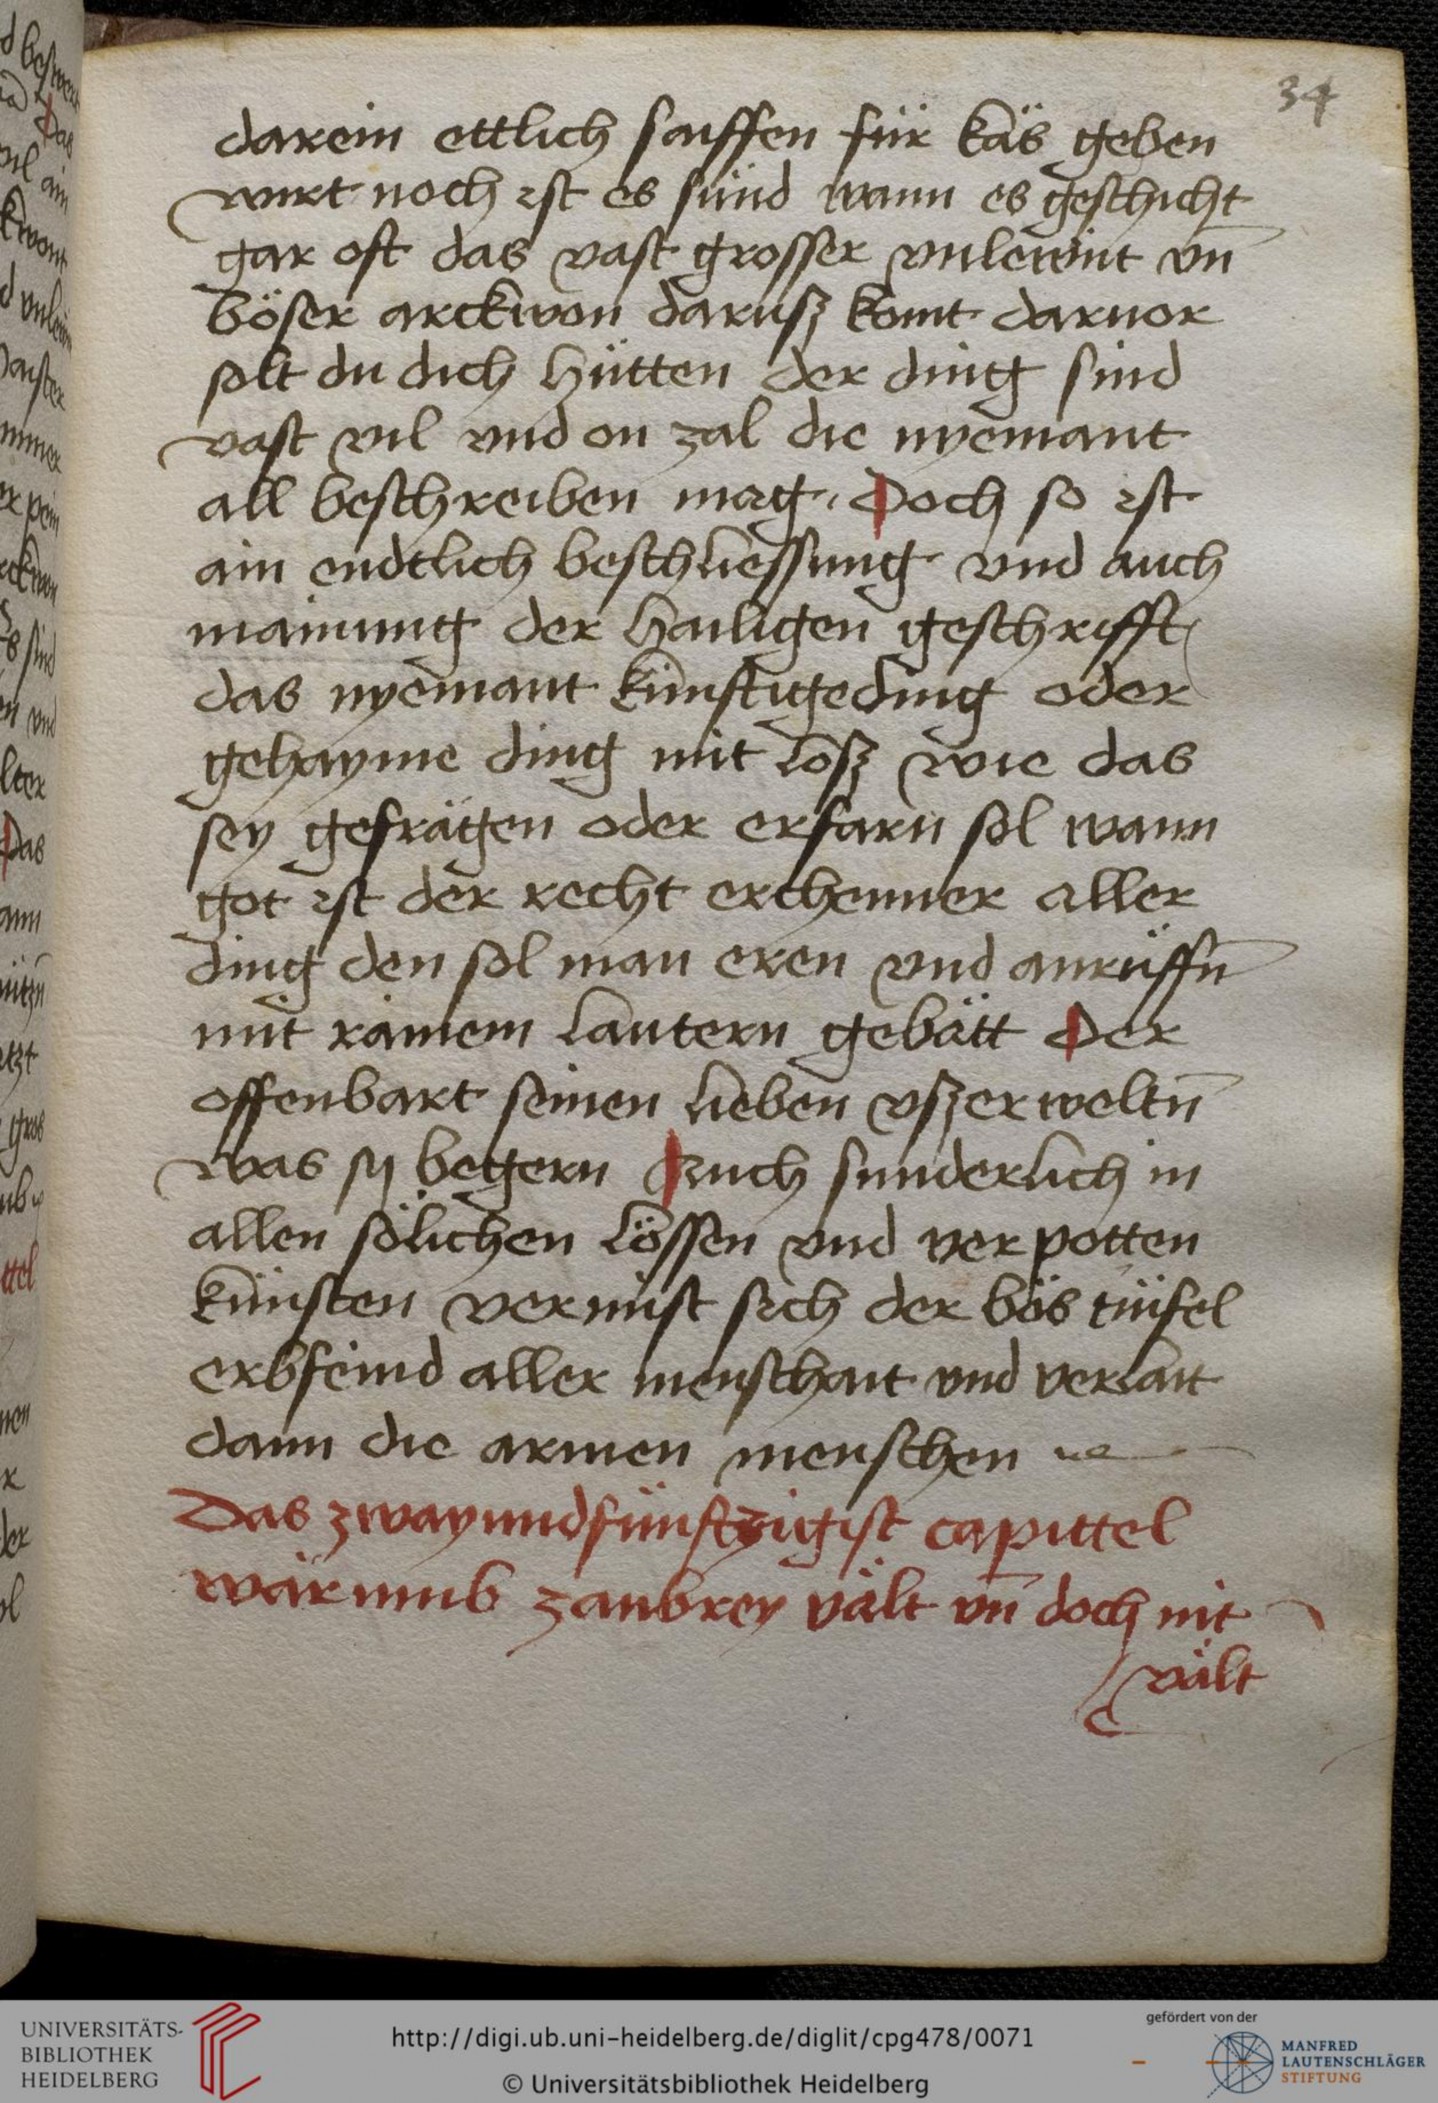 34
darein ettlich saiffen für käs geben
wirt noch ist es sünd wann es geschicht
gar oft das vast grosser vnlewnt vn̄
böser arckwon darusz komt daruor
solt du dich hütten der ding sind
vast vil vnd on zal die nyemant
all beschreiben mag. Doch so ist
ain endtlich beschliessung vnd auch
mainung der hailigen geschrifft
das nyemant künftige ding oder
gehayme ding mit lösz wie das
sey gefrägen oder erfarn sol wann
got ist der recht erchenner aller
ding den sol man eren vnd anrüffn̄
mit rainem lautern gebätt Der
offenbart seinen lieben vszerweltn̄
was sy begern Auch sunderlich in
allen sölichen lössen vnd verpotten
künsten vermist sich der bös tüifel
erbfeind aller menschait vnd verlait
dann die armen menschen
Das zwayundfünftzigist capittel
wärumb zaubrey vält vn̄ doch nit
vält
UNIVERSITÄTS-
BIBLIOTHEK
HEIDELBERG
http://digi.ub.uni-heidelberg.de/diglit/cpg478/0071
© Universitätsbibliothek Heidelberg
gefördert von der
MANFRED
LAUTENSCHLÄGER
STIFTUNG